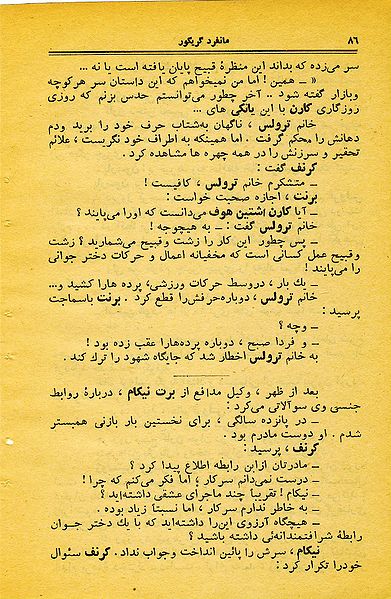 ۸۶ مانفرد گریگور
سر می‌زده که بداند این منظرهٔ قبیح پایان یافته است یا نه ...
« ــ همین ! اما من نمیخواهم که این داستان سر هر کوچه
وبازار گفته شود .. آخر چطور می‌توانستم حدس بزنم که روزی
روزگاری کارن با این یانکی های ...
خانم ترولس ، ناگهان به‌شتاب حرف خود را برید ودم
دهانش را محکم گرفت . اما همینکه به اطراف خود نگریست ، علائم
تحقیر و سرزنش را در همه چهره ها مشاهده کرد .
کرنف گفت :
ــ متشکرم خانم ترولس ، کافیست !
برنت ، اجازه صحبت خواست :
ــ آیا کارن اشتین هوف می‌دانست که اورا می‌پایند ؟
خانم ترولس گفت : ــ به هیچوجه !
ــ پس چطور این کار را زشت وقبیح می‌شمارید ؟ زشت
وقبیح عمل کسانی است که مخفیانه اعمال و حرکات دختر جوانی
را می‌پایند !
ــ یك بار ، دروسط حرکات ورزشی، پرده هارا کشید و...
خانم ترولس ، دوباره‌حرفش‌را قطع کرد . برنت باسماجت
پرسید :
ــ وچه ؟
ــ و فردا صبح ، دوباره پرده‌هارا عقب زده بود !
به خانم ترولس اخطار شد که جایگاه شهود را ترك کند .
بعد از ظهر ، وکیل مدافع از برت نیکام ، دربارهٔ روابط
جنسی وی سوآلاتی می‌کرد :
ــ در پانزده سالگی ، برای نخستین بار بازنی همبستر
شدم . او دوست مادرم بود .
کرنف ، پرسید :
ــ مادرتان ازاین رابطه اطلاع پیدا کرد ؟
ــ درست نمی‌دانم سرکار ، اما فکر می‌کنم که چرا !
ــ نیکام ! تقریبا چند ماجرای عشقی داشته‌اید ؟
ــ به خاطر ندارم سرکار ، اما نسبتا زیاد بوده .
ــ هیچگاه آرزوی این‌را داشته‌اید که با یك دختر جوان
رابطهٔ شرافتمندانه‌ئی داشته باشید ؟
نیکام ، سرش را پائین انداخت وجواب نداد . کرنف سئوال
خودرا تکرار کرد :